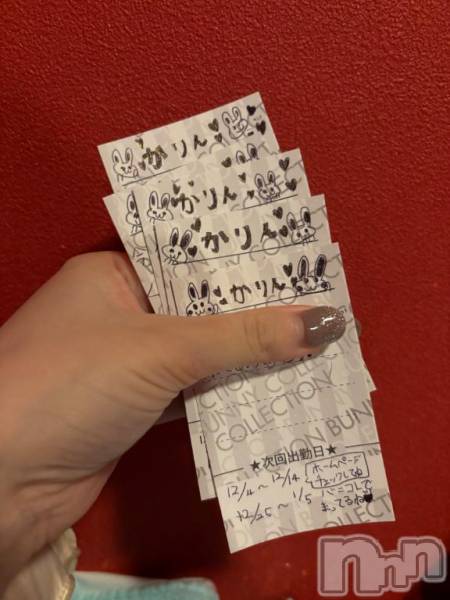 かりん
かりん
かりん
かりん
COLLECTION
BUNNY COLLECTION
COLLECTION
★次回出勤日★
12/11～12/14
ホームページ
チェックしてね
12/25～1/5
バニコレで
まってるね♥
nnn